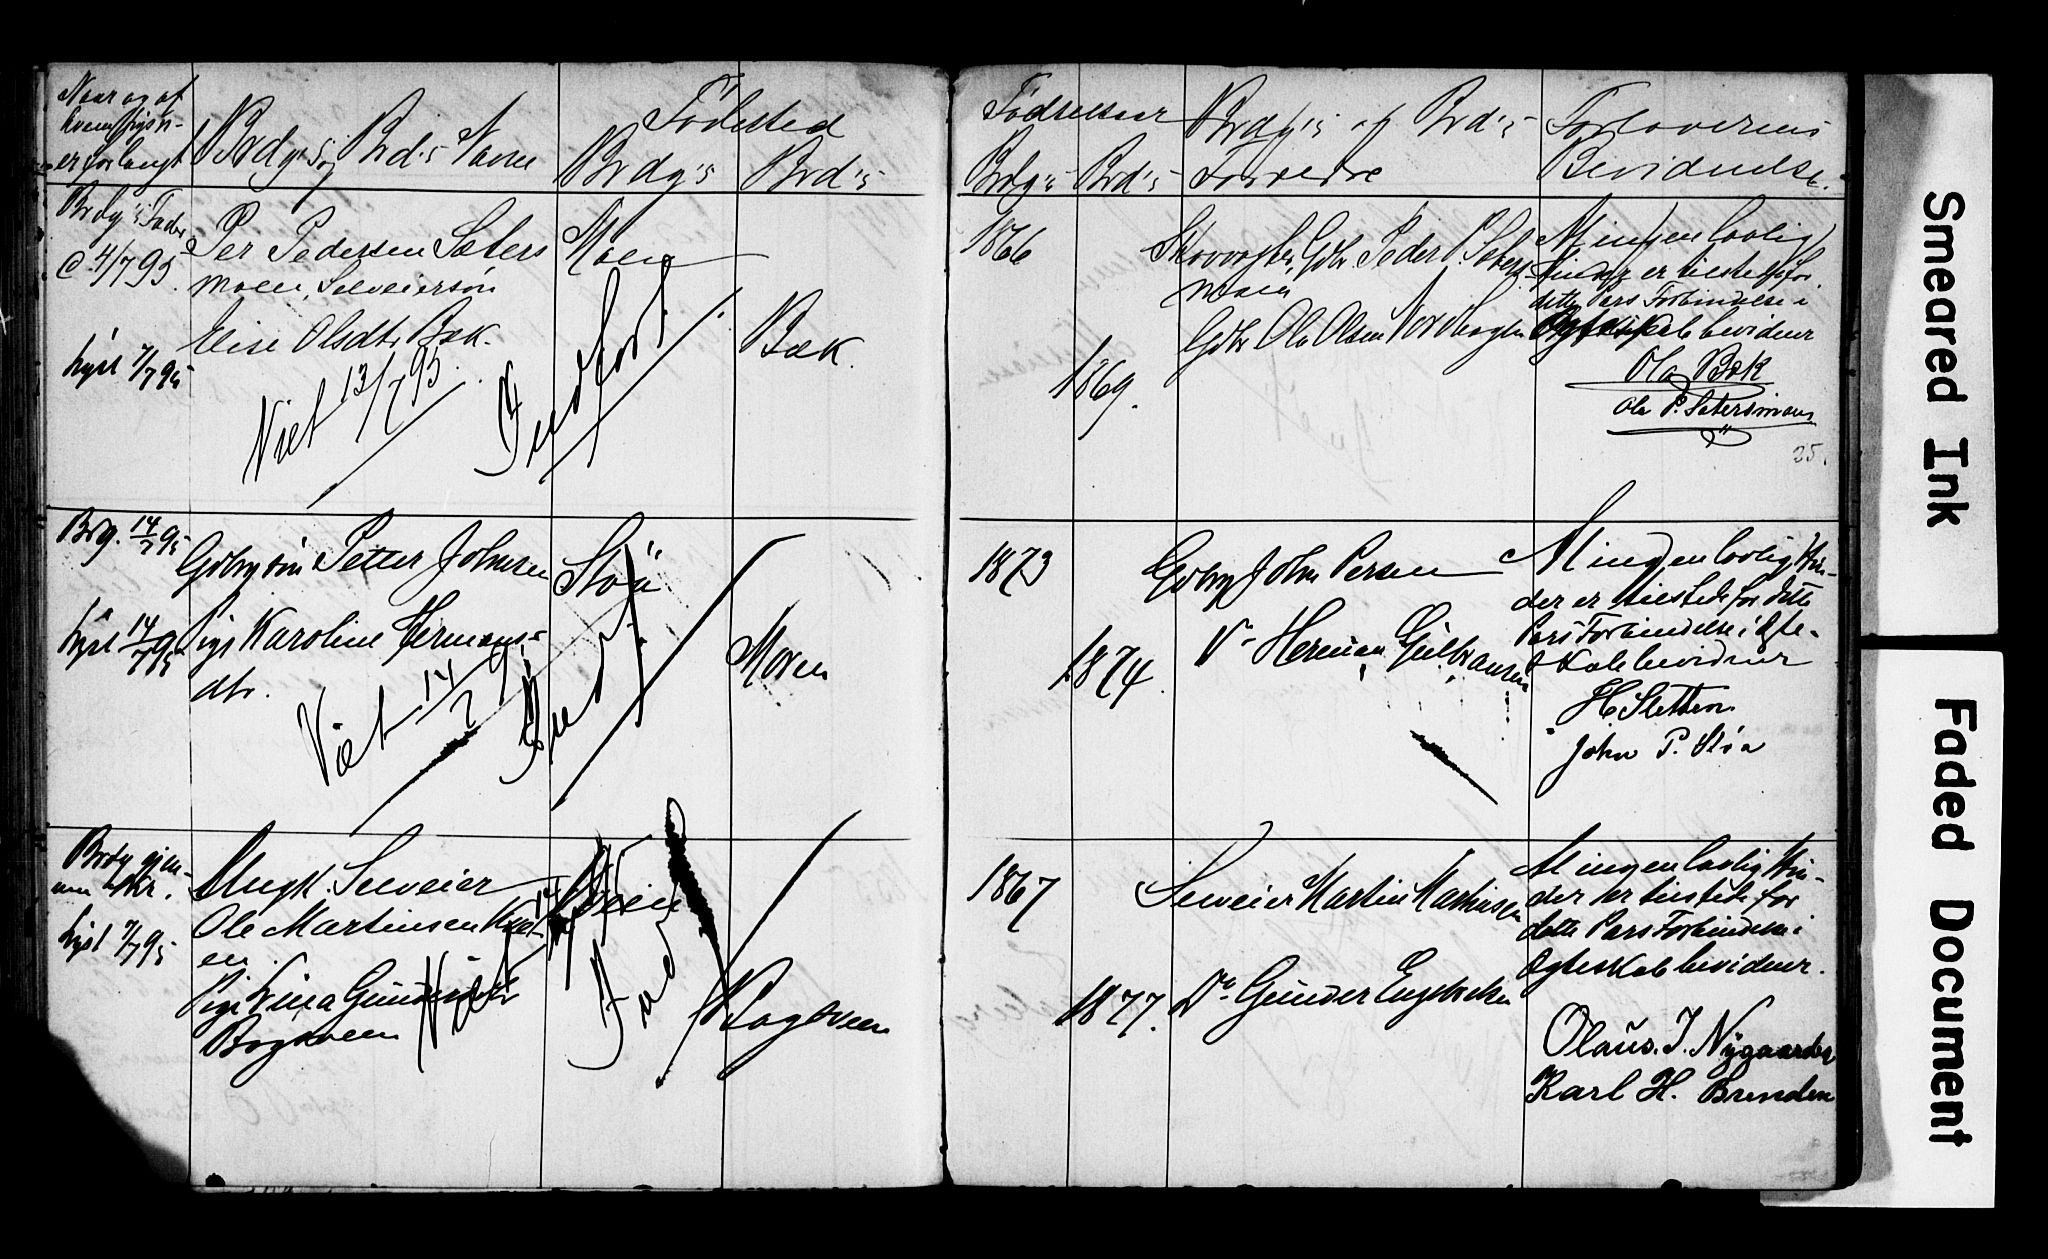 Naar og af
hvem lysn-
er forlangt
Brdg's og Brd's Navne
Födested
Brdg's
Brd's
Fødselsaar
Brdg's
Brd's
Brdg's og Brd's
Forældre
Forlovernes
Bevidnelse.
Brdg's Fader
d 4/7 95.
Lyst 7/7 95
Per Pedersen Sæters
moen, Selveiersön
Elise Olsdtr. Bæk.
Viet 13/7 95
Indført
Moen
Bæk.
1866
1869.
Skovvogter, Gdbr. Peder P. Sæters-
moen
Gdbr Ola Olsen
At ingen lovlig
Hindring er tilstede for
dette Pars Forbindelse i
Ægteskab bevidner
Ola Bæk
Ola P. Sætersmoen
25.
Brdg. 14/7 95
Lyst 14/7 95
Gdbrgsön Petter Johnsen
Pige Karoline Hermans-
dtr.
Viet 14/7 95
Indf.
Stöa
Moren
1873
1874.
Gdbrg John Persen
Do Herman Gulbransen
At ingen lovlig Hin-
der er tilstede for dette
Pars Forbindelse i Ægte-
skab bevidner
H. Sletten
John P. Støa
Brdg gjen-
nem
Lyst 7/7 95
Ungk. Selveier
Ole Martinsen
en
Pige Lina Gundersdtr
Bagveen
Viet 14
Indf
Bagveen
1867
1877.
Selveier Martin Mathisen
Do Gunder Engebretsen
At ingen lovlig Hin-
der er tilstede for
dette Pars Forbindelse i
Ægteskab bevidner.
Olaus. J. Nygaarden
Karl H. Brenden
Smeared Ink
Faded Document